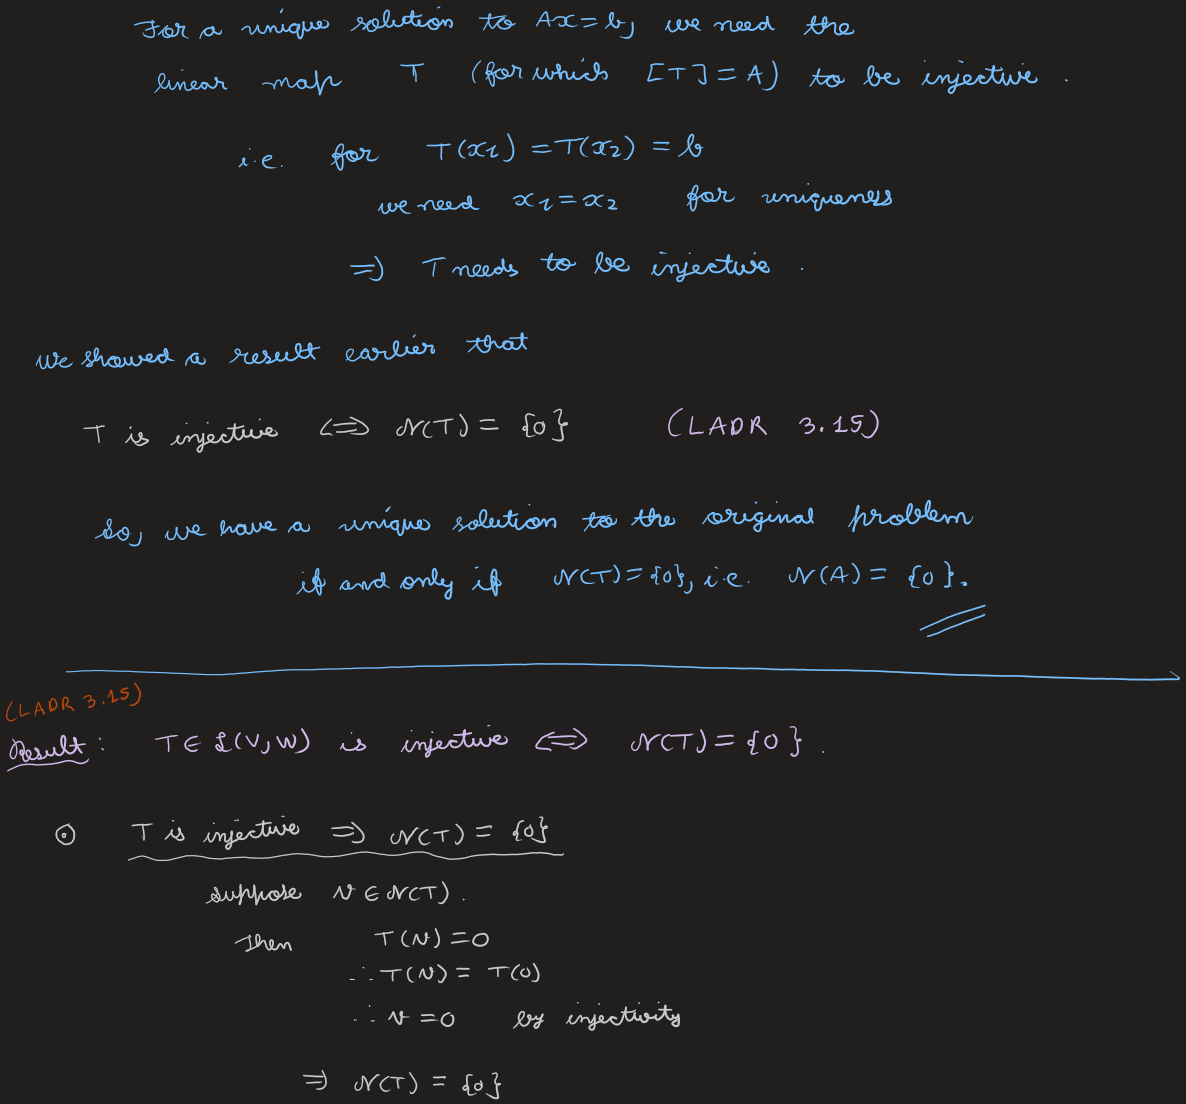 For a unique solution to Ax=b, we need the
linear map T (for which [T]=A) to be injective.
i.e. for T(x₁) = T(x₂) = b
we need x₁=x₂ for uniqueness
⇒ T needs to be injective.
We showed a result earlier that
T is injective ⇔ N(T) = {0} (LADR 3.15)
So, we have a unique solution to the original problem
if and only if N(T)={0}, i.e. N(A) = {0}.
(LADR 3.15)
Result: T∈ L(V,W) is injective ⇔ N(T)={0}.
⊙ T is injective ⇒ N(T) = {0}
Suppose v ∈ N(T).
Then T(v)=0
∴ T(v) = T(0)
∴ v=0 by injectivity
⇒ N(T) = {0}